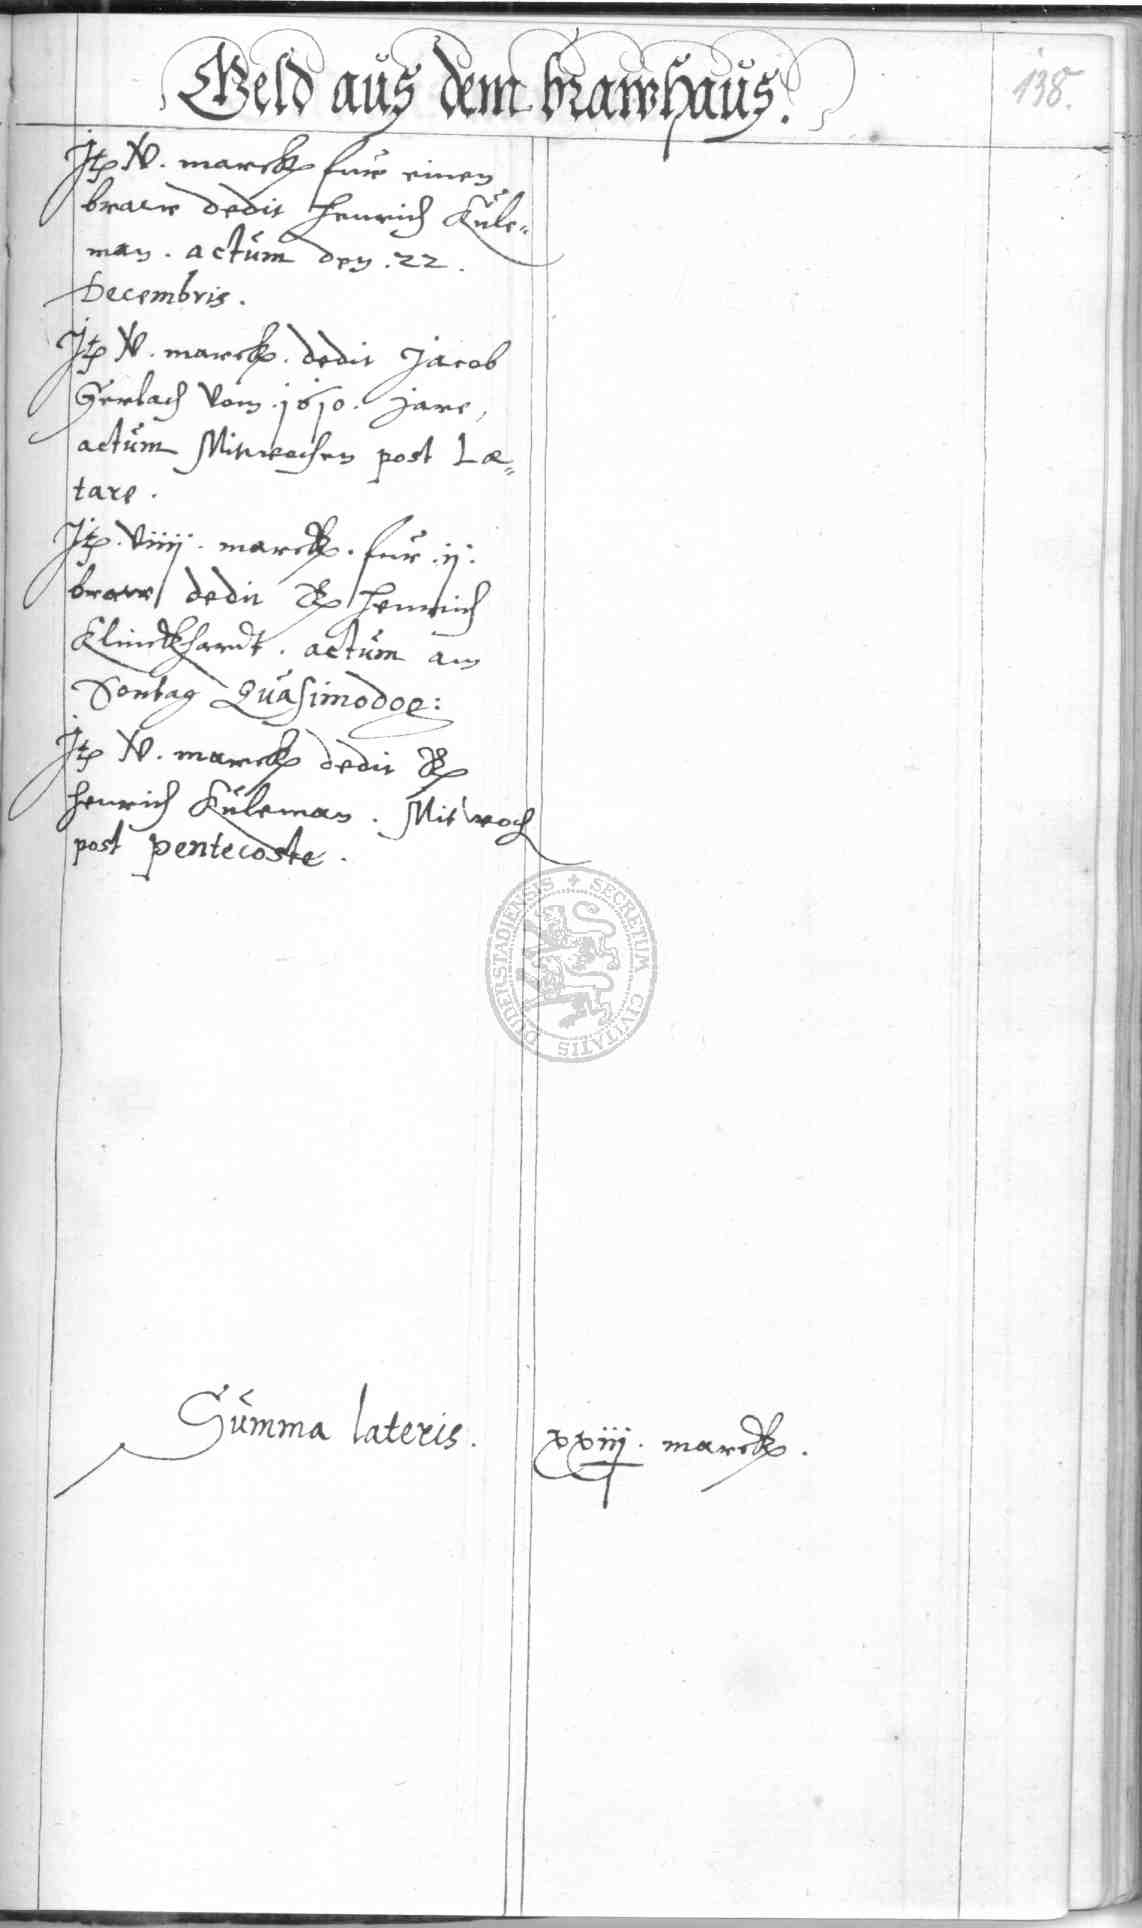 Geld aus dem brawhaus.
138.
Itē V. marck fur einen
braw dedit Henrich Kule=
man. actum den. 22.
Decembris.
Itē V. marck. dedit Jacob
Gerlach vom. 1610. jare,
actum Mitwochen post Læ=
tare.
Itē. Viiij. marck. fur. ij.
braw dedit H Henrich
Klinckhardt. actum am
Sontag Quasimodog:
Itē V. marck dedit H
Henrich Kuleman. Mitwoch
post pentecoste.
SECRETUM CIVITATIS DUDERSTADIENSIS
Summa lateris. xxiij. marck.